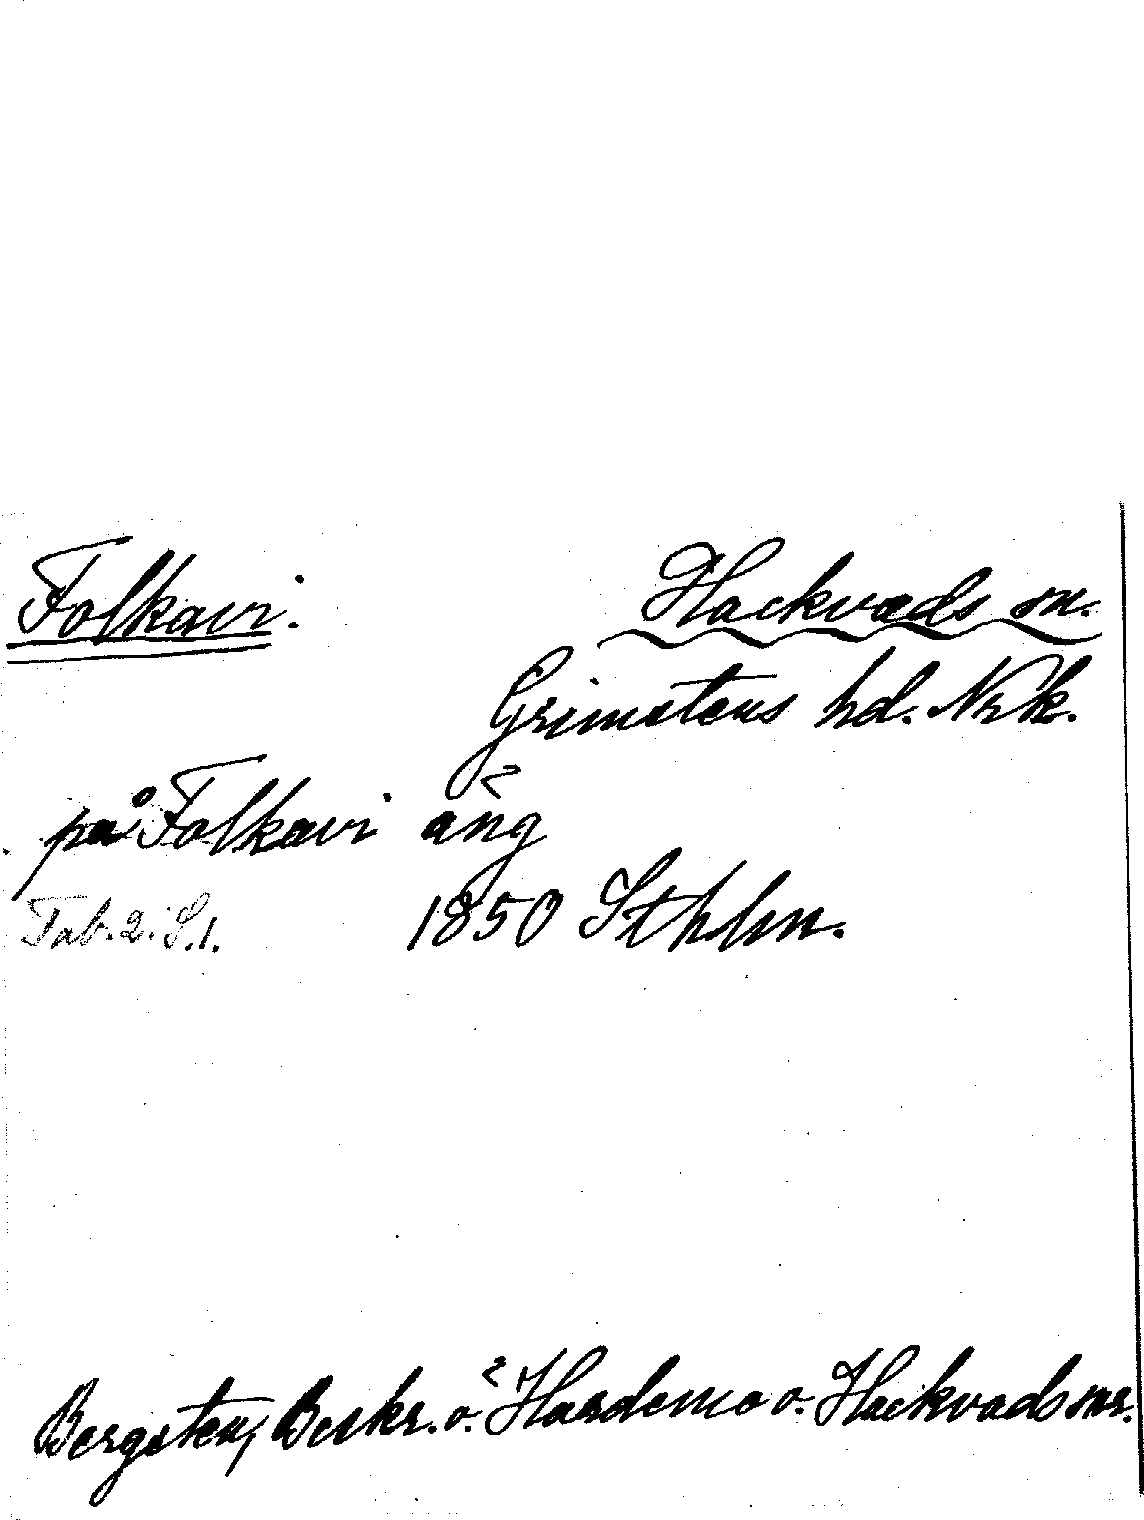 Folkavi. Hackvads sn.
Grimstens hd. Nrk.
på Folkavi äng
Tab. 2. S. 1. 1850 Sthlm.
Bergsten, Beskr. ö. Hardemo o. Hackvads snr.